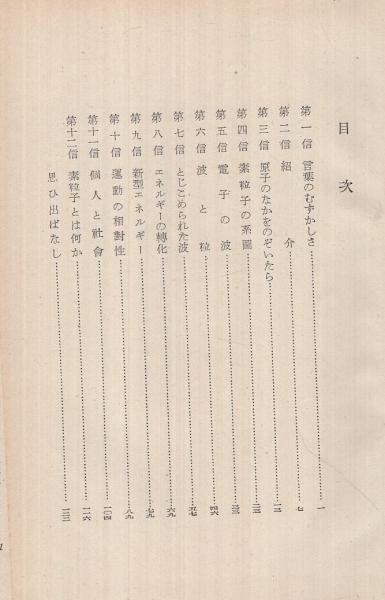 目次
第一信 言葉のむずかしさ……一
第二信 紹介……七
第三信 原子のなかをのぞいたら……一三
第四信 素粒子の系圖……二三
第五信 電子の波……三三
第六信 波と粒……四六
第七信 とじこめられた波……五七
第八信 エネルギーの轉化……六九
第九信 新型エネルギー……七九
第十信 運動の相對性……八九
第十一信 個人と社會……一〇四
第十二信 素粒子とは何か……一一六
思ひ出ばなし……一三二
1